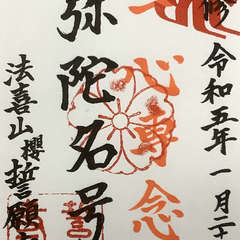 修 令和五年一月二十
心専念
弥陀名号
法喜山 櫻 誓願